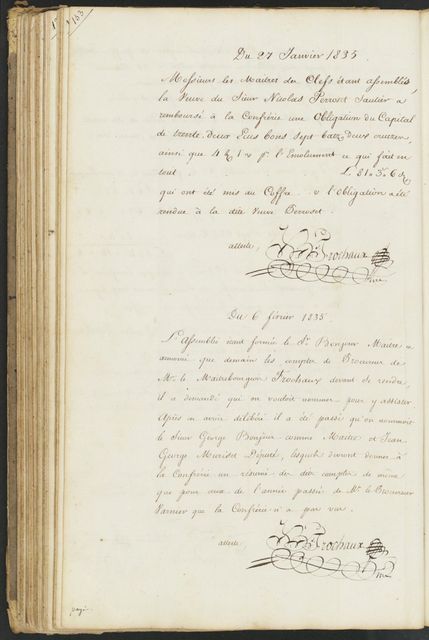 183
Du 27 Janvier 1835
Messieurs les Maitres des Clefs étant assemblés,
la Veuve du Sieur Nicolas Perroset Sautier a
remboursé à la Confrérie une Obligation du Capital
de trente deux Ecus bons sept batz deux cruzer,
ainsi que 4 1 pr l'Emolument ce qui fait en
tout L. 81 " 5 " 6
qui ont été mis au Coffre. l'obligation a été
rendue à la dite Veuve Perroset.
atteste, Frochaux
Du 6 février 1835.
L'Assemblée étant formée le Sr. Bonjour Maitre a
annoncé que demain les comptes de Procureur de
Mr. le Maitrebourgeois Frochaux devant se rendre,
il a demandé qui on vouloit nommer pour y assister
Après en avoir délibéré il a été passé qu'on nommoit
le Sieur George Bonjour comme Maitre et Jean
George Muriset Député, lesquels devront donner à
la Confrérie un résumé des dits comptes de même
que pour ceux de l'année passée de Mr. le Procureur
Varnier que la Confrérie n'a pas vus.
atteste, Frochaux